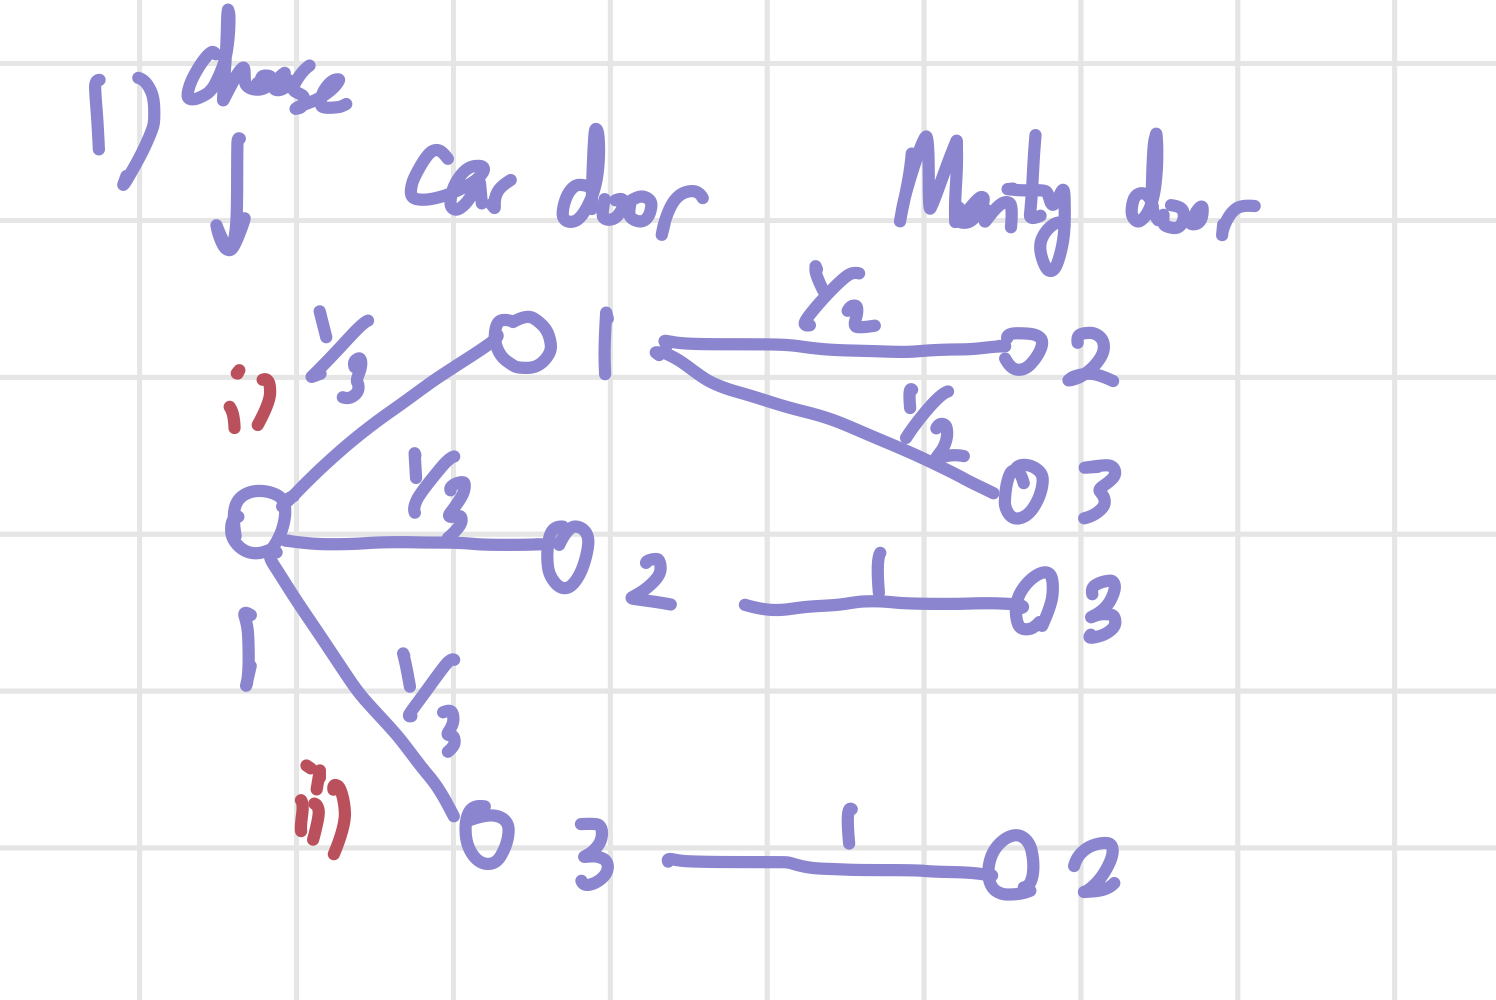 1) choose
Car door Monty door
1/3 1 1/2 2
i)
1/2 3
1/3 2 1 3
1
1/3
ii)
3 1 2